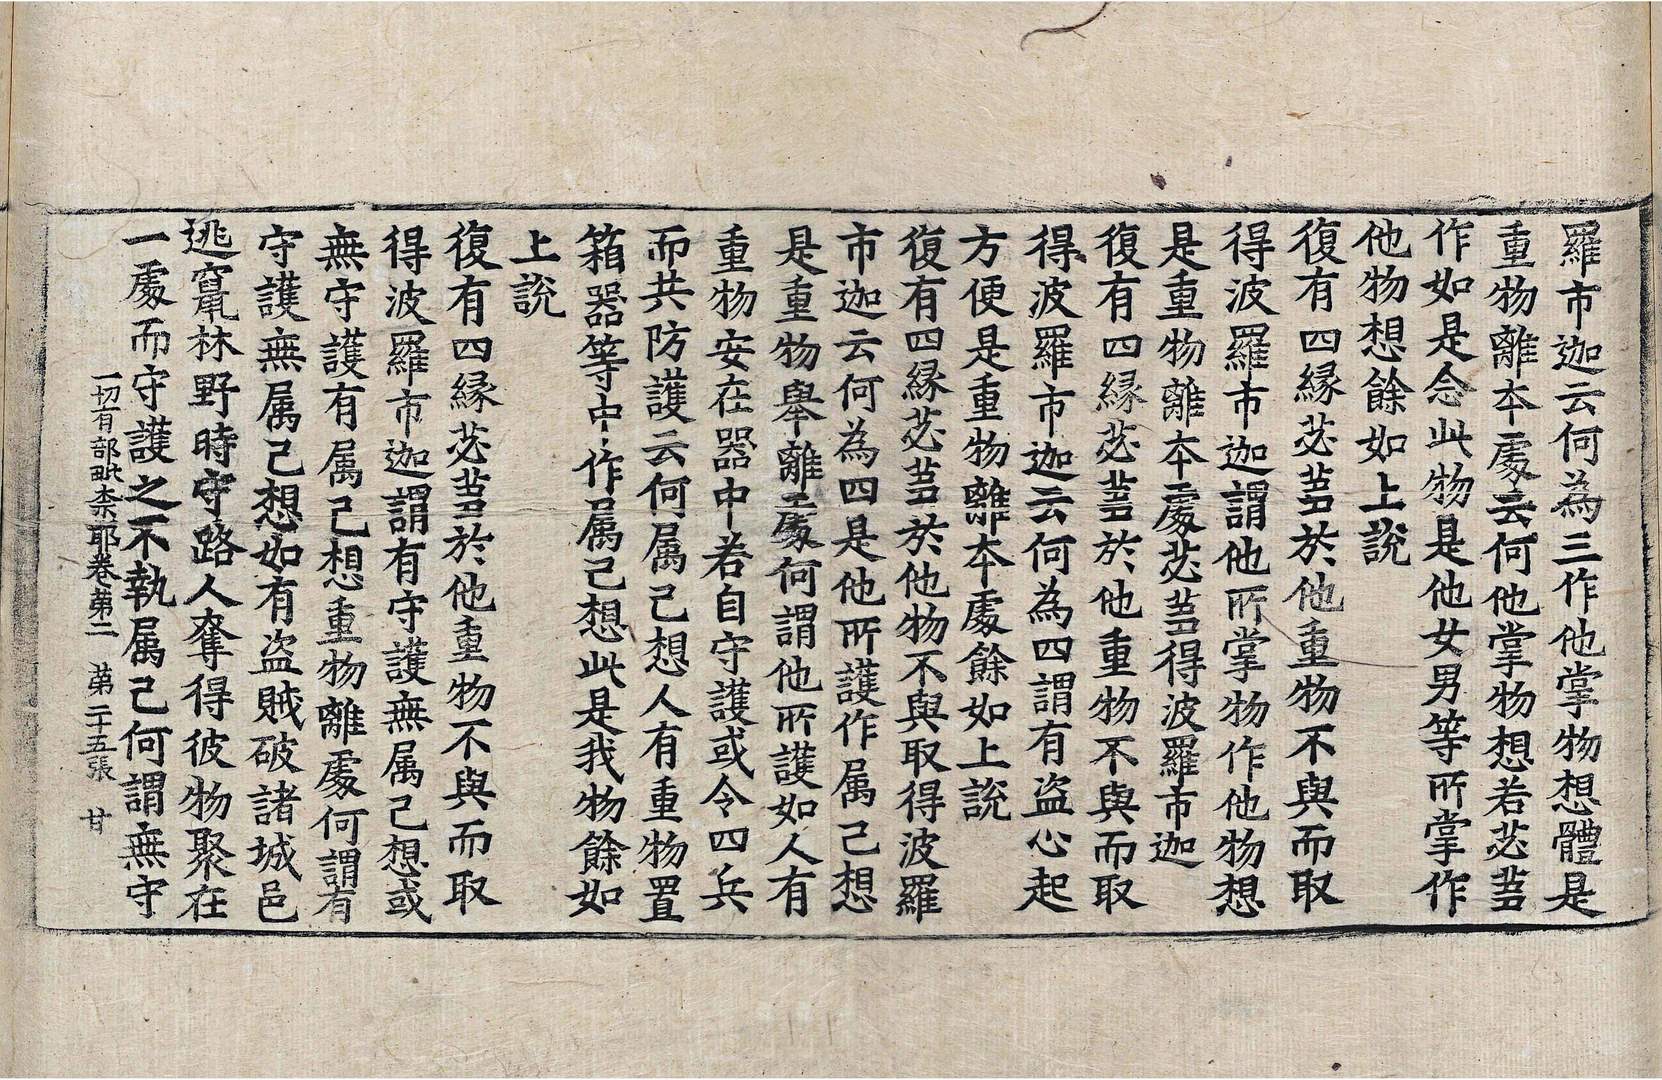 羅市迦云何為三作他掌物想體是
重物離本處云何他掌物想若苾芻
作如是念此物是他女男等所掌作
他物想餘如上說
復有四緣苾芻於他重物不與而取
得波羅市迦謂他所掌物作他物想
是重物離本處苾芻得波羅市迦
復有四緣苾芻於他重物不與而取
得波羅市迦云何為四謂有盜心起
方便是重物離本處餘如上說
復有四緣苾芻於他物不與取得波羅
市迦云何為四是他所護作属己想
是重物舉離處何謂他所護如人有
重物安在器中若自守護或令四兵
而共防護云何属己想人有重物置
箱器等中作属己想此是我物餘如
上說
復有四緣苾芻於他重物不與而取
得波羅市迦謂有守護無属己想或
無守護有属己想重物離處何謂有
守護無属己想如有盜賊破諸城邑
逃竄林野時守路人奪得彼物聚在
一處而守護之不執属己何謂無守
一切有部毗柰耶卷苐二 苐二十五張 甘